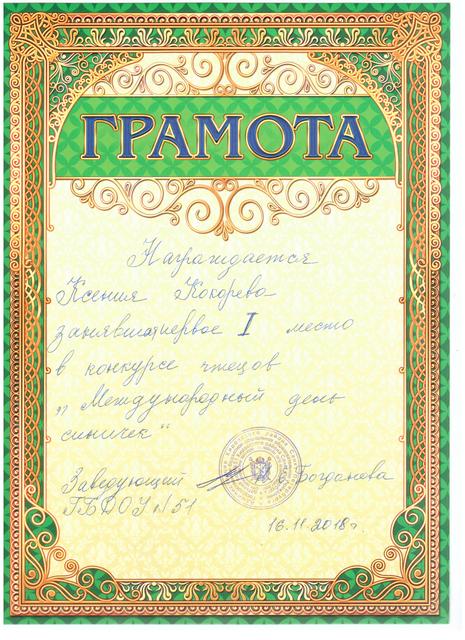 ГРАМОТА
Награждается
Ксения Кокорева
занявшая первое I место
в конкурсе чтецов
„Международный день
синичек“
Заведующий Богданова
ГБДОУ №51
16.11.2018г.